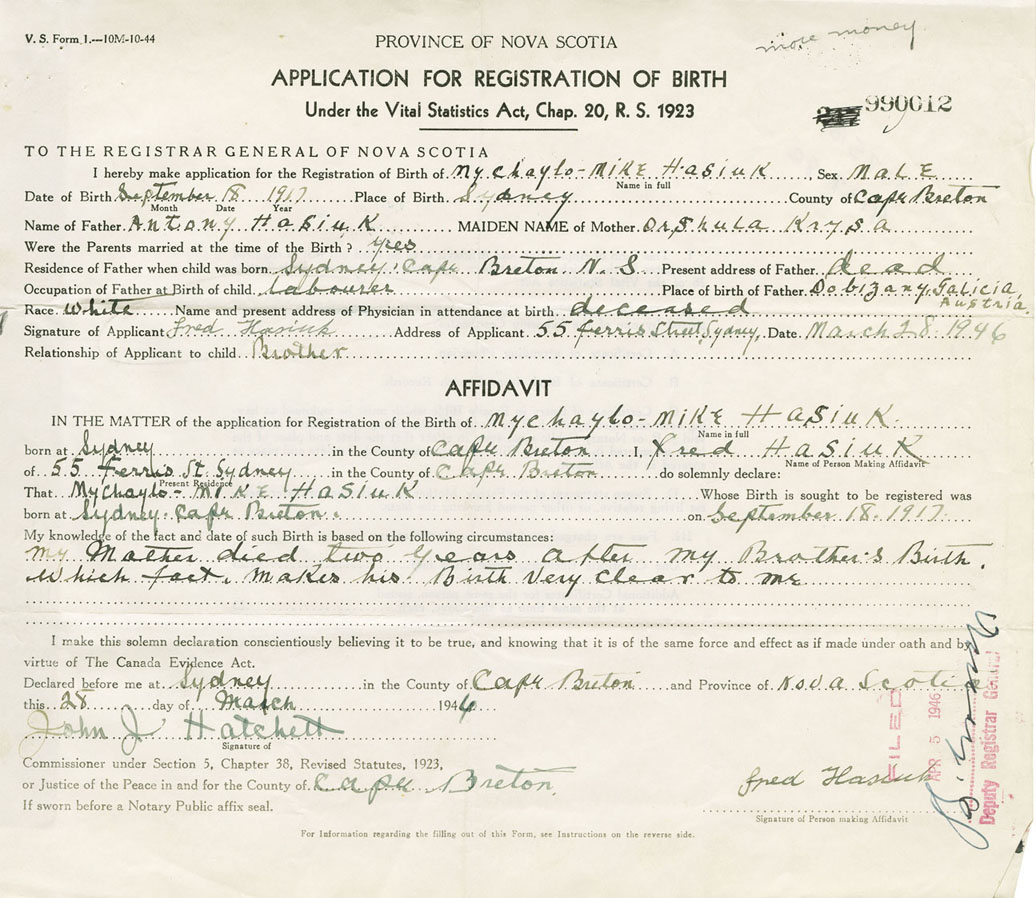 V. S. Form 1.—10M-10-44
more money
PROVINCE OF NOVA SCOTIA
APPLICATION FOR REGISTRATION OF BIRTH
Under the Vital Statistics Act, Chap. 20, R. S. 1923
990012
TO THE REGISTRAR GENERAL OF NOVA SCOTIA
I hereby make application for the Registration of Birth of Mychaylo-MIKE HASIUK, Sex MALE
Name in full
Date of Birth September 18 1917 Place of Birth Sydney County of Cape Breton
Month Date Year
Name of Father Antony HASIUK MAIDEN NAME of Mother Orshula Krysa
Were the Parents married at the time of the Birth? yes
Residence of Father when child was born Sydney. Cape Breton N. S Present address of Father dead
Occupation of Father at Birth of child labourer Place of birth of Father Dobizany, Galicia
Austria.
Race White Name and present address of Physician in attendance at birth deceased
Signature of Applicant Fred Hasiuk Address of Applicant 55 Ferris Street, Sydney, Date March 28, 1946
Relationship of Applicant to child Brother
AFFIDAVIT
IN THE MATTER of the application for Registration of the Birth of Mychaylo-MIKE HASIUK
Name in full
born at Sydney in the County of Cape Breton I, Fred HASIUK
Name of Person Making Affidavit
of 55 Ferris St. Sydney in the County of Cape Breton do solemnly declare:
Present Residence
That Mychaylo-MIKE HASIUK Whose Birth is sought to be registered was
born at Sydney. Cape Breton. on September 18. 1917
My knowledge of the fact and date of such Birth is based on the following circumstances:
My Mother died two years after my Brother's Birth.
Which fact, makes his Birth very clear to me
I make this solemn declaration conscientiously believing it to be true, and knowing that it is of the same force and effect as if made under oath and by
virtue of The Canada Evidence Act.
Declared before me at Sydney in the County of Cape Breton and Province of Nova Scotia
this 28 day of March 1946
John J Hatchett
Signature of
Commissioner under Section 5, Chapter 38, Revised Statutes, 1923,
or Justice of the Peace in and for the County of Cape Breton
If sworn before a Notary Public affix seal.
Fred Hasiuk
Signature of Person making Affidavit
FILED
APR 5 1946
Deputy Registrar General
For Information regarding the filling out of this Form, see Instructions on the reverse side.